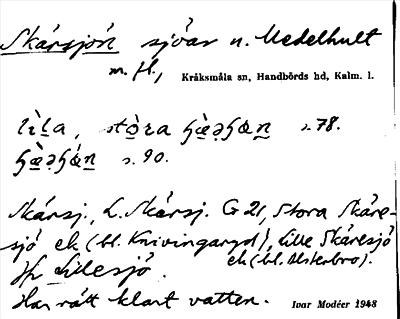 Skårsjön sjöar n. Uedelhult
m. fl., Kråksmåla sn, Handbörds hd, Kalm. l.
lìla, stòra s.78.
s.90.
Skårsj., L. Skårsj. G 21, Stora Skåre-
sjö ek (bl. Knivingaryd), Lille Skåresjö
Jfr Lillesjö. ek (bl. Alsterbro).
Har rätt klart vatten. Ivar Modéer 1943